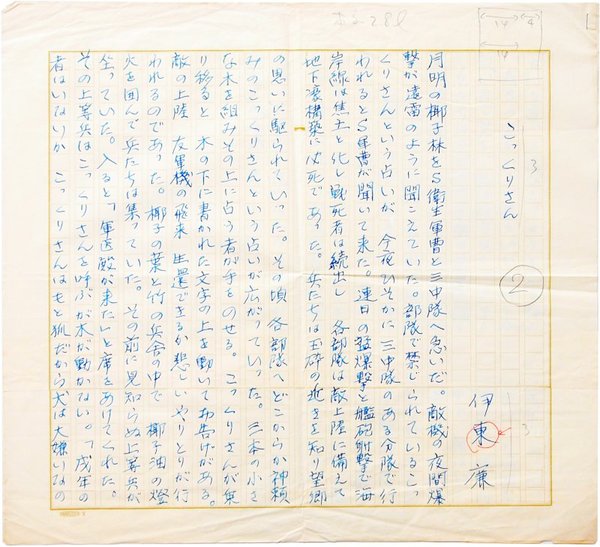 こっくりさん
伊東廉
月明の椰子林をS衛生軍曹と三中隊へ急いだ。敵機の夜間爆
撃が遠雷のように聞こえていた。部隊で禁じられているこっ
くりさんという占いが、今夜ひそかに三中隊のある分隊で行
われるとS軍曹が聞いて来た。連日の猛爆撃と艦砲射撃で海
岸線は焦土と化し戦死者は続出し 各部隊は敵上陸に備えて
地下壕構築に必死であった。 兵たちは玉砕の近きを知り望郷
の思いに駆られていった。その頃 各部隊へどこからか神頼
みのこっくりさんという占いが広がっていった。三本の小さ
な木を組みその上に占う者が手をのせる。こっくりさんが乗
り移ると 木の下に書かれた文字の上を動いてお告げがある。
敵の上陸 友軍機の飛来 生還できるか悲しいやりとりが行
われるのであった。椰子の葉と竹の兵舎の中で 椰子油の燈
火を囲んで兵たちは集っていた。その前に見知らぬ上等兵が
坐っていた。入ると「軍医殿が来た」と席をあけてくれた。
その上等兵はこっくりさんを呼ぶが木が動かない。「戌年の
者はいないか こっくりさんはもと狐だから犬は大嫌いなの
②
3
3
14
4
14